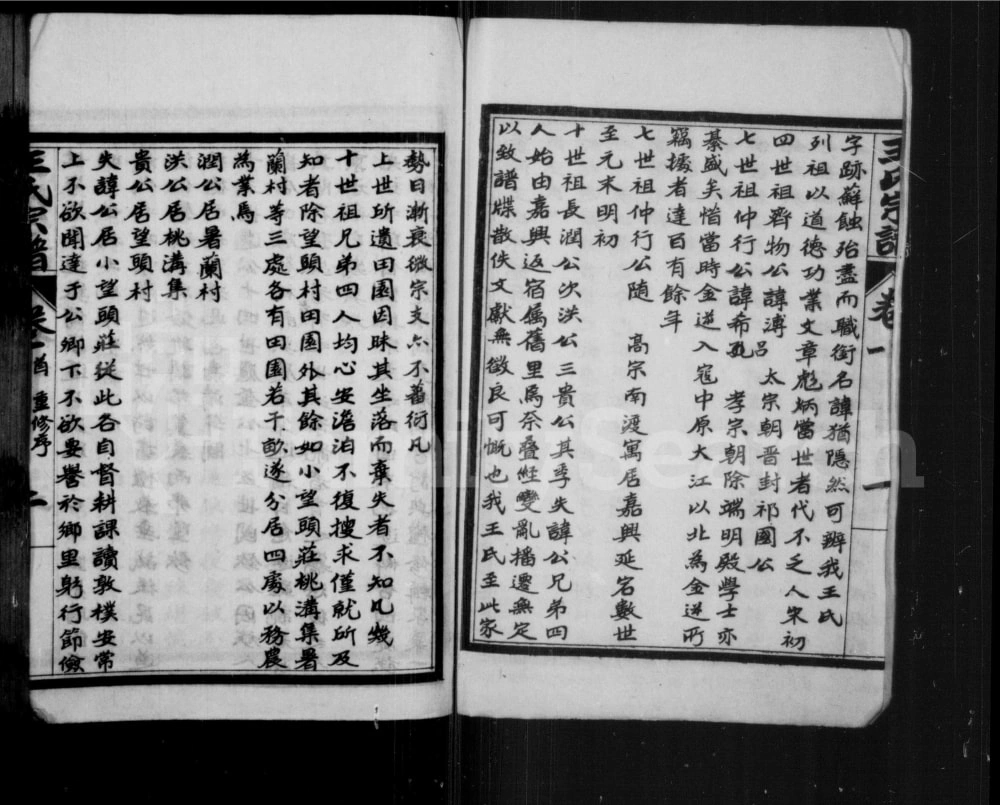 王氏宗譜
卷一
一
字跡蘚蝕殆盡而職銜名諱猶隱然可辨我王氏
列祖以道德功業文章彪炳當世者代不乏人宋初
四世祖齊物公諱溥呂 太宗朝晋封祁國公
七世祖仲行公諱希 孝宗朝除端明殿學士亦
綦盛矣惜當時金逆入寇中原大江以北為金逆所
竊據者達百有餘年
七世祖仲行公隨 高宗南渡寓居嘉興延宕數世
至元末明初
十世祖長潤公次洪公三貴公其季失諱公兄弟四
人始由嘉興返宿屬舊里為奈疊經變亂播遷無定
以致譜牒散佚文獻無徵良可慨也我王氏至此家
勢日漸衰微宗支亦不蕃衍凡
上世所遺田園因昧其坐落而棄失者不知凡幾
十世祖兄弟四人均心安澹泊不復搜求僅就所及
知者除望頭村田園外其餘如小望頭莊桃溝集暑
蘭村等三處各有田園若干畝遂分居四處以務農
為業焉
潤公居暑蘭村
洪公居桃溝集
貴公居望頭村
失諱公居小望頭莊從此各自督耕課讀敦樸安常
上不欲聞達于公卿下不欲要譽於鄉里躬行節儉
王氏宗譜
卷一 酋 重修序
二